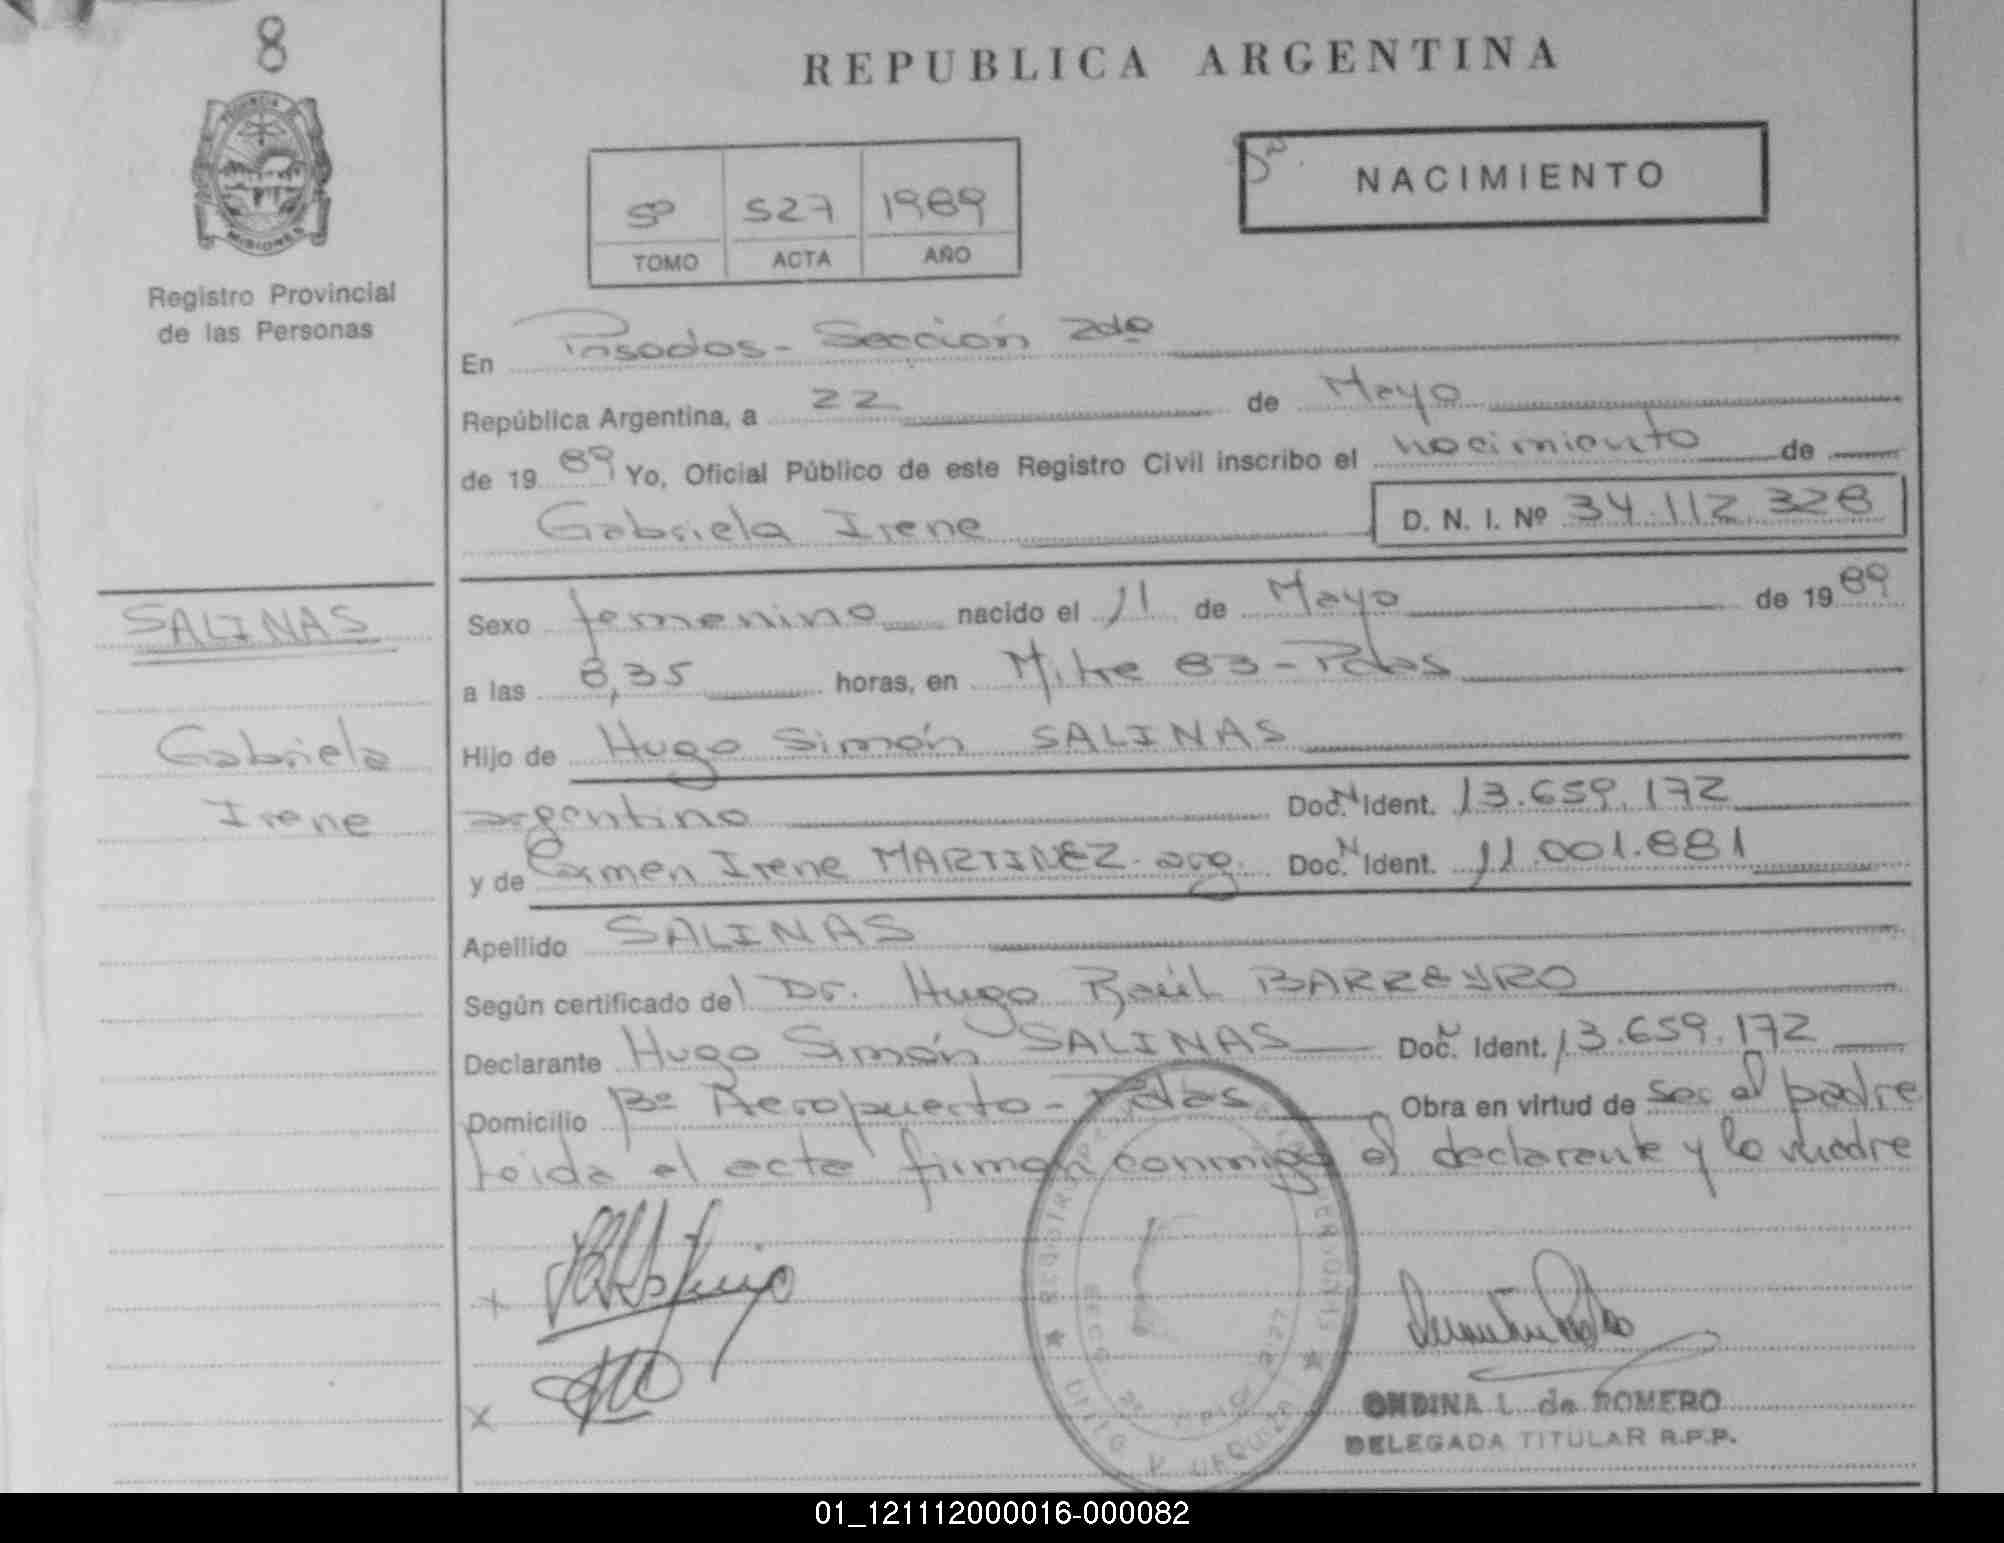 8
REPUBLICA ARGENTINA
PROVINCIA
MISIONES
Registro Provincial
de las Personas
NACIMIENTO
5º 527 1989
TOMO ACTA AÑO
En Posadas - Sección 2da
República Argentina, a 22 de Mayo
de 1989 Yo, Oficial Público de este Registro Civil inscribo el nacimiento de
Gabriela Irene D. N. I. Nº 34.112.328
SALINAS
Gabriela
Irene
Sexo femenino nacido el 11 de Mayo de 1989
a las 8,35 horas, en Mitre 83 - Pdas
Hijo de Hugo Simón SALINAS
argentino Doc. N Ident. 13.659.172
y de Carmen Irene MARTINEZ - arg. Doc. N Ident. 11.001.881
Apellido SALINAS
Según certificado del Dr. Hugo Raúl BARREYRO
Declarante Hugo Simón SALINAS Doc. N Ident. 13.659.172
Domicilio Bº Aeropuerto - Pdas Obra en virtud de ser el padre
Leida el acta firman conmigo el declarante y la madre
X
X
ONDINA L. de ROMERO
DELEGADA TITULAR R.P.P.
01_121112000016-000082